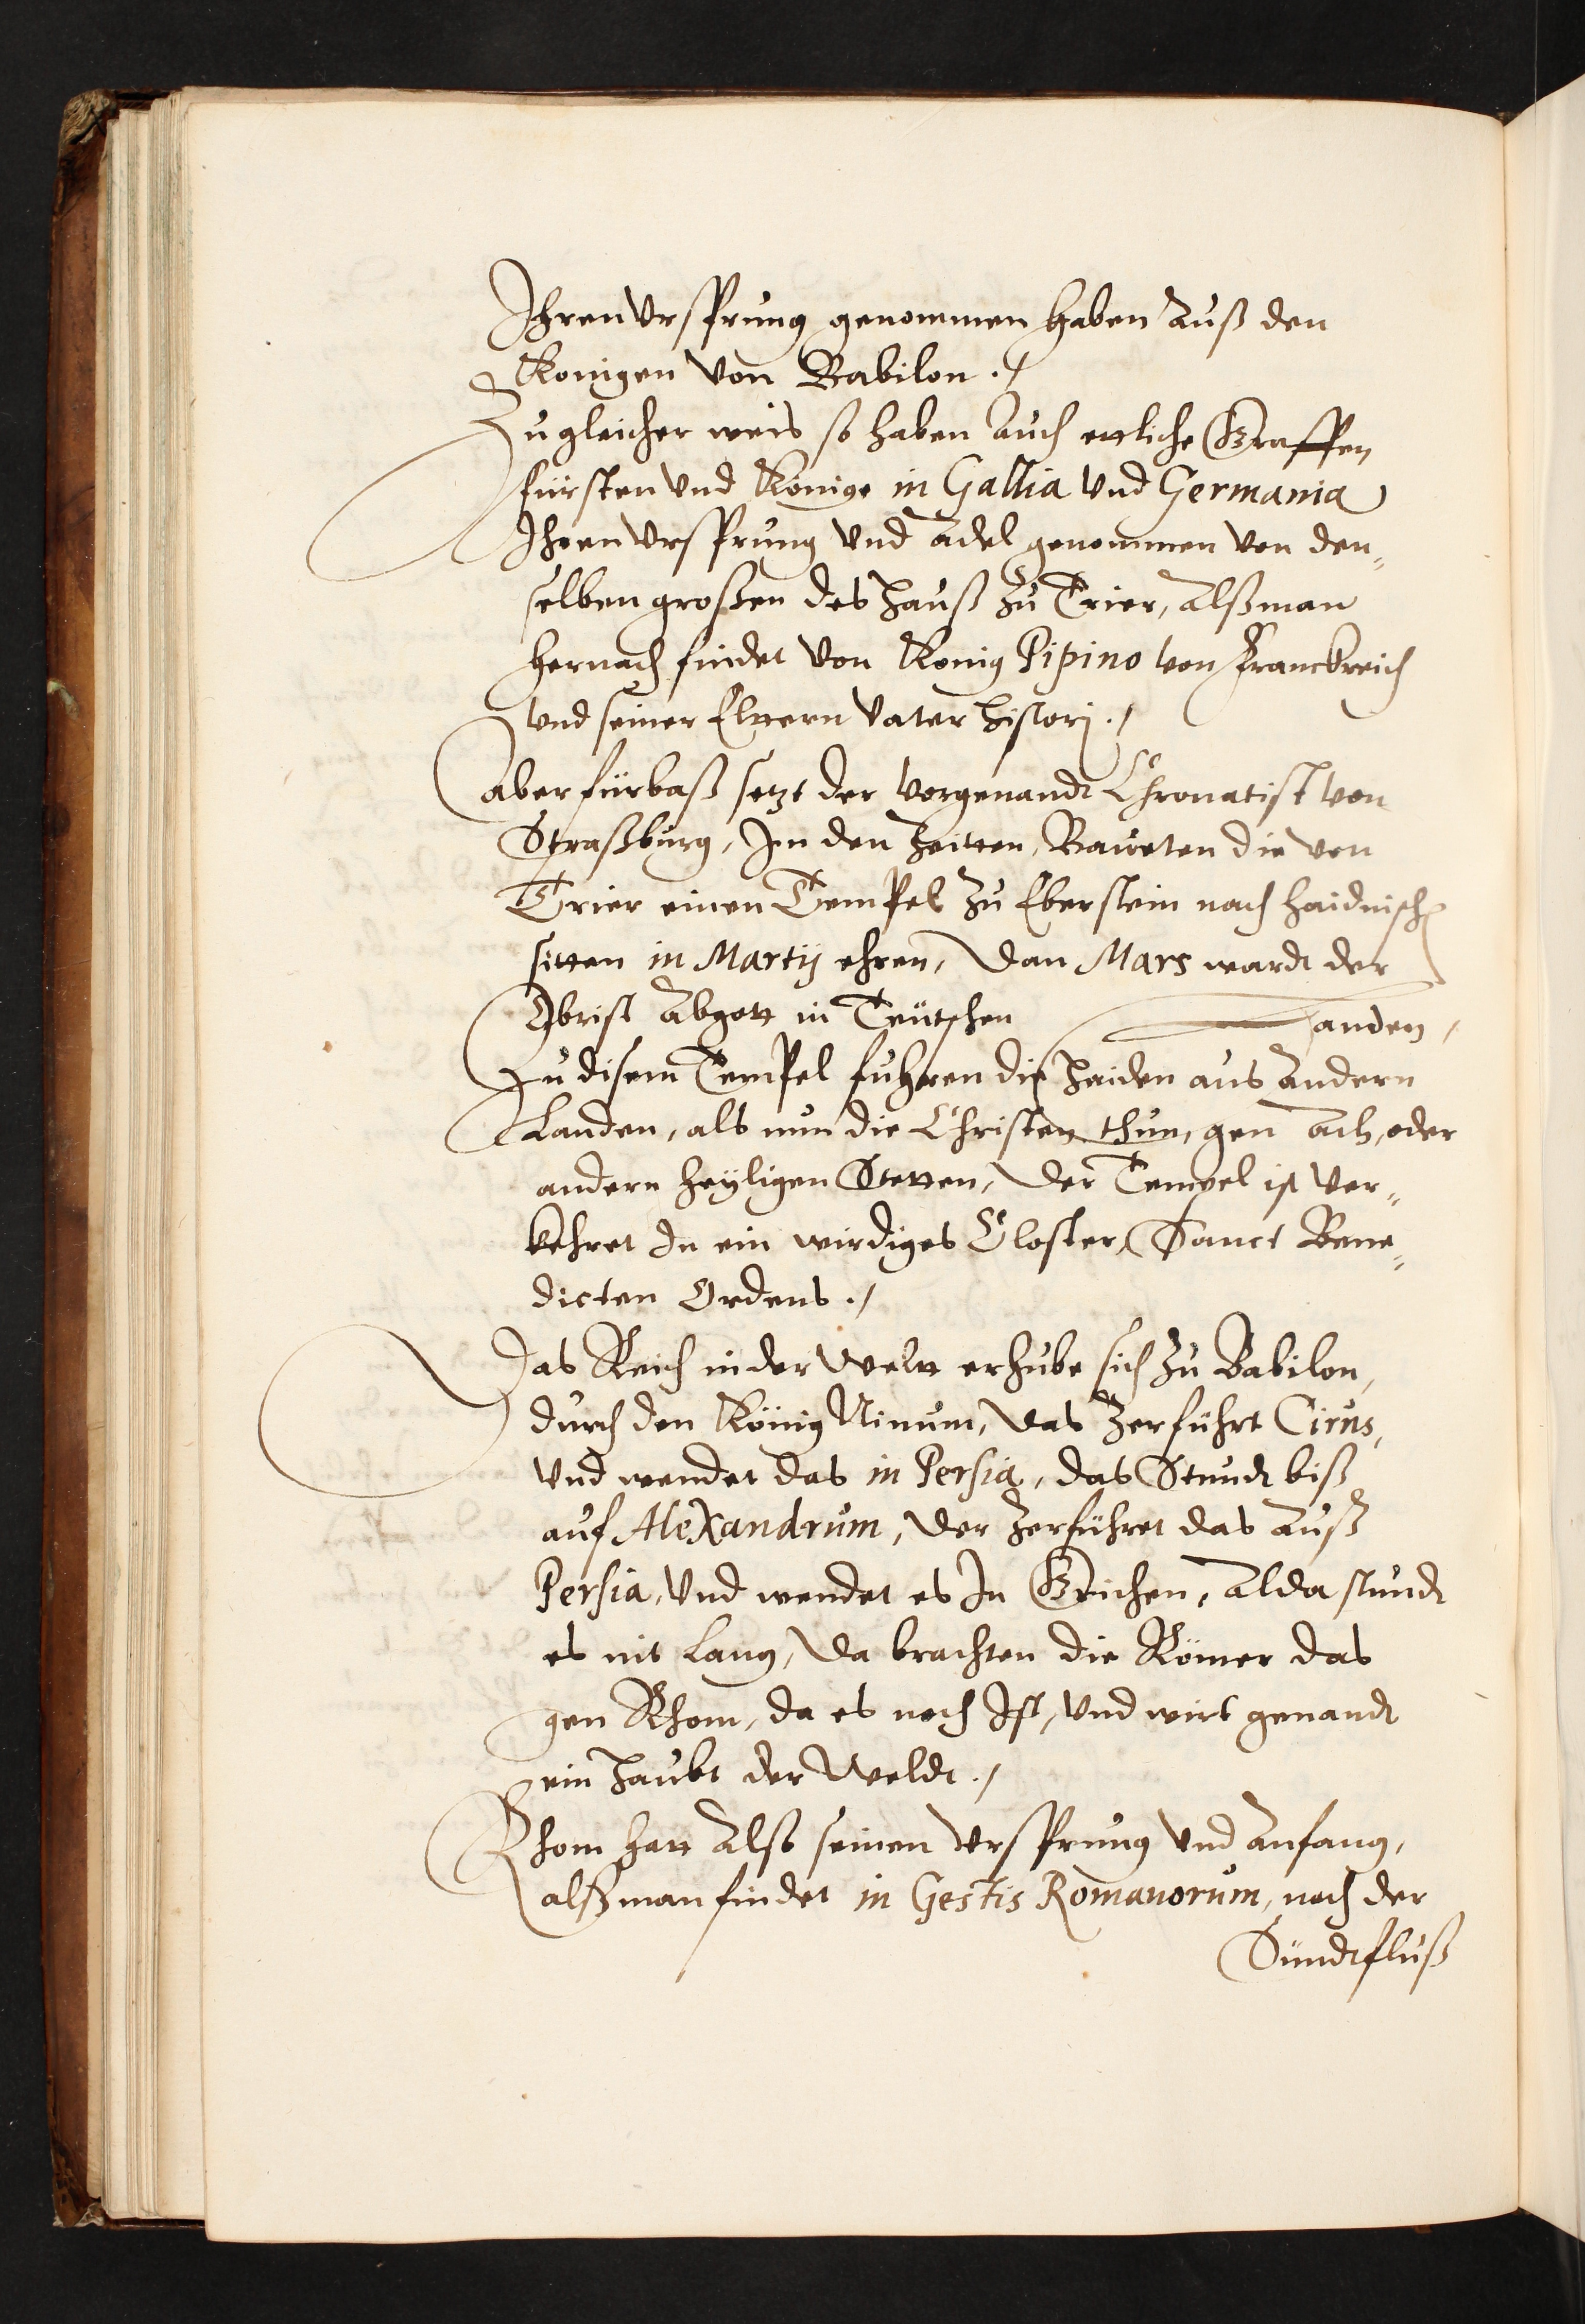 Ihren Ursprung genommen haben Auß den
Konigen Von Babilon ./
Zu gleicher weis so haben Auch ettliche Graffen
fürsten Und Könige in Gallia Und Germania
Ihren Ursprung Und Adel genommen Von den=
selben großen des Hauß Zu Trier, Alß man
hernach findet Von Konig Pipino Von Franckreich
Und seiner Elttern Vater histori ./
Aber fürbaß setzt der Vorgenandt Chronatist Von
Straßburg, Im den Zeitten, Baweten die Von
Trier einen Tempel Zu Eberstein nach haidnisch
sitten in Martij ehren, Dan Mars wardt der
Obrist Abgott in Teütschen Landen,
Zu disem Tempel fuhren die Haiden aus Andern
Landen, als nun die Christen thun, gen Ach, oder
andern heyligen Stetten, Der Tempel ist Ver=
kehret In ein wirdiges Closter, Sanct Bene=
dicten Ordens ./
Das Reich in der Weltt erhube sich Zu Babilon,
durch den König Ninum, Das Zerführt Cirus,
Und wendet das in Persia, das Stundt biß
auf Alexandrum, Der Zerführet das Auß
Persia, Und wendet es In Grichen, Alda stundt
es nit Lang, Da brachten die Römer das
gen Rhom, da es noch Ist, Und wirt genandt
ein Haubt der Weldt ./
Rhom hatt Also seinen Ursprung Und Anfang,
alß man findet in Gestis Romanorum, nach der
Sündtfluß